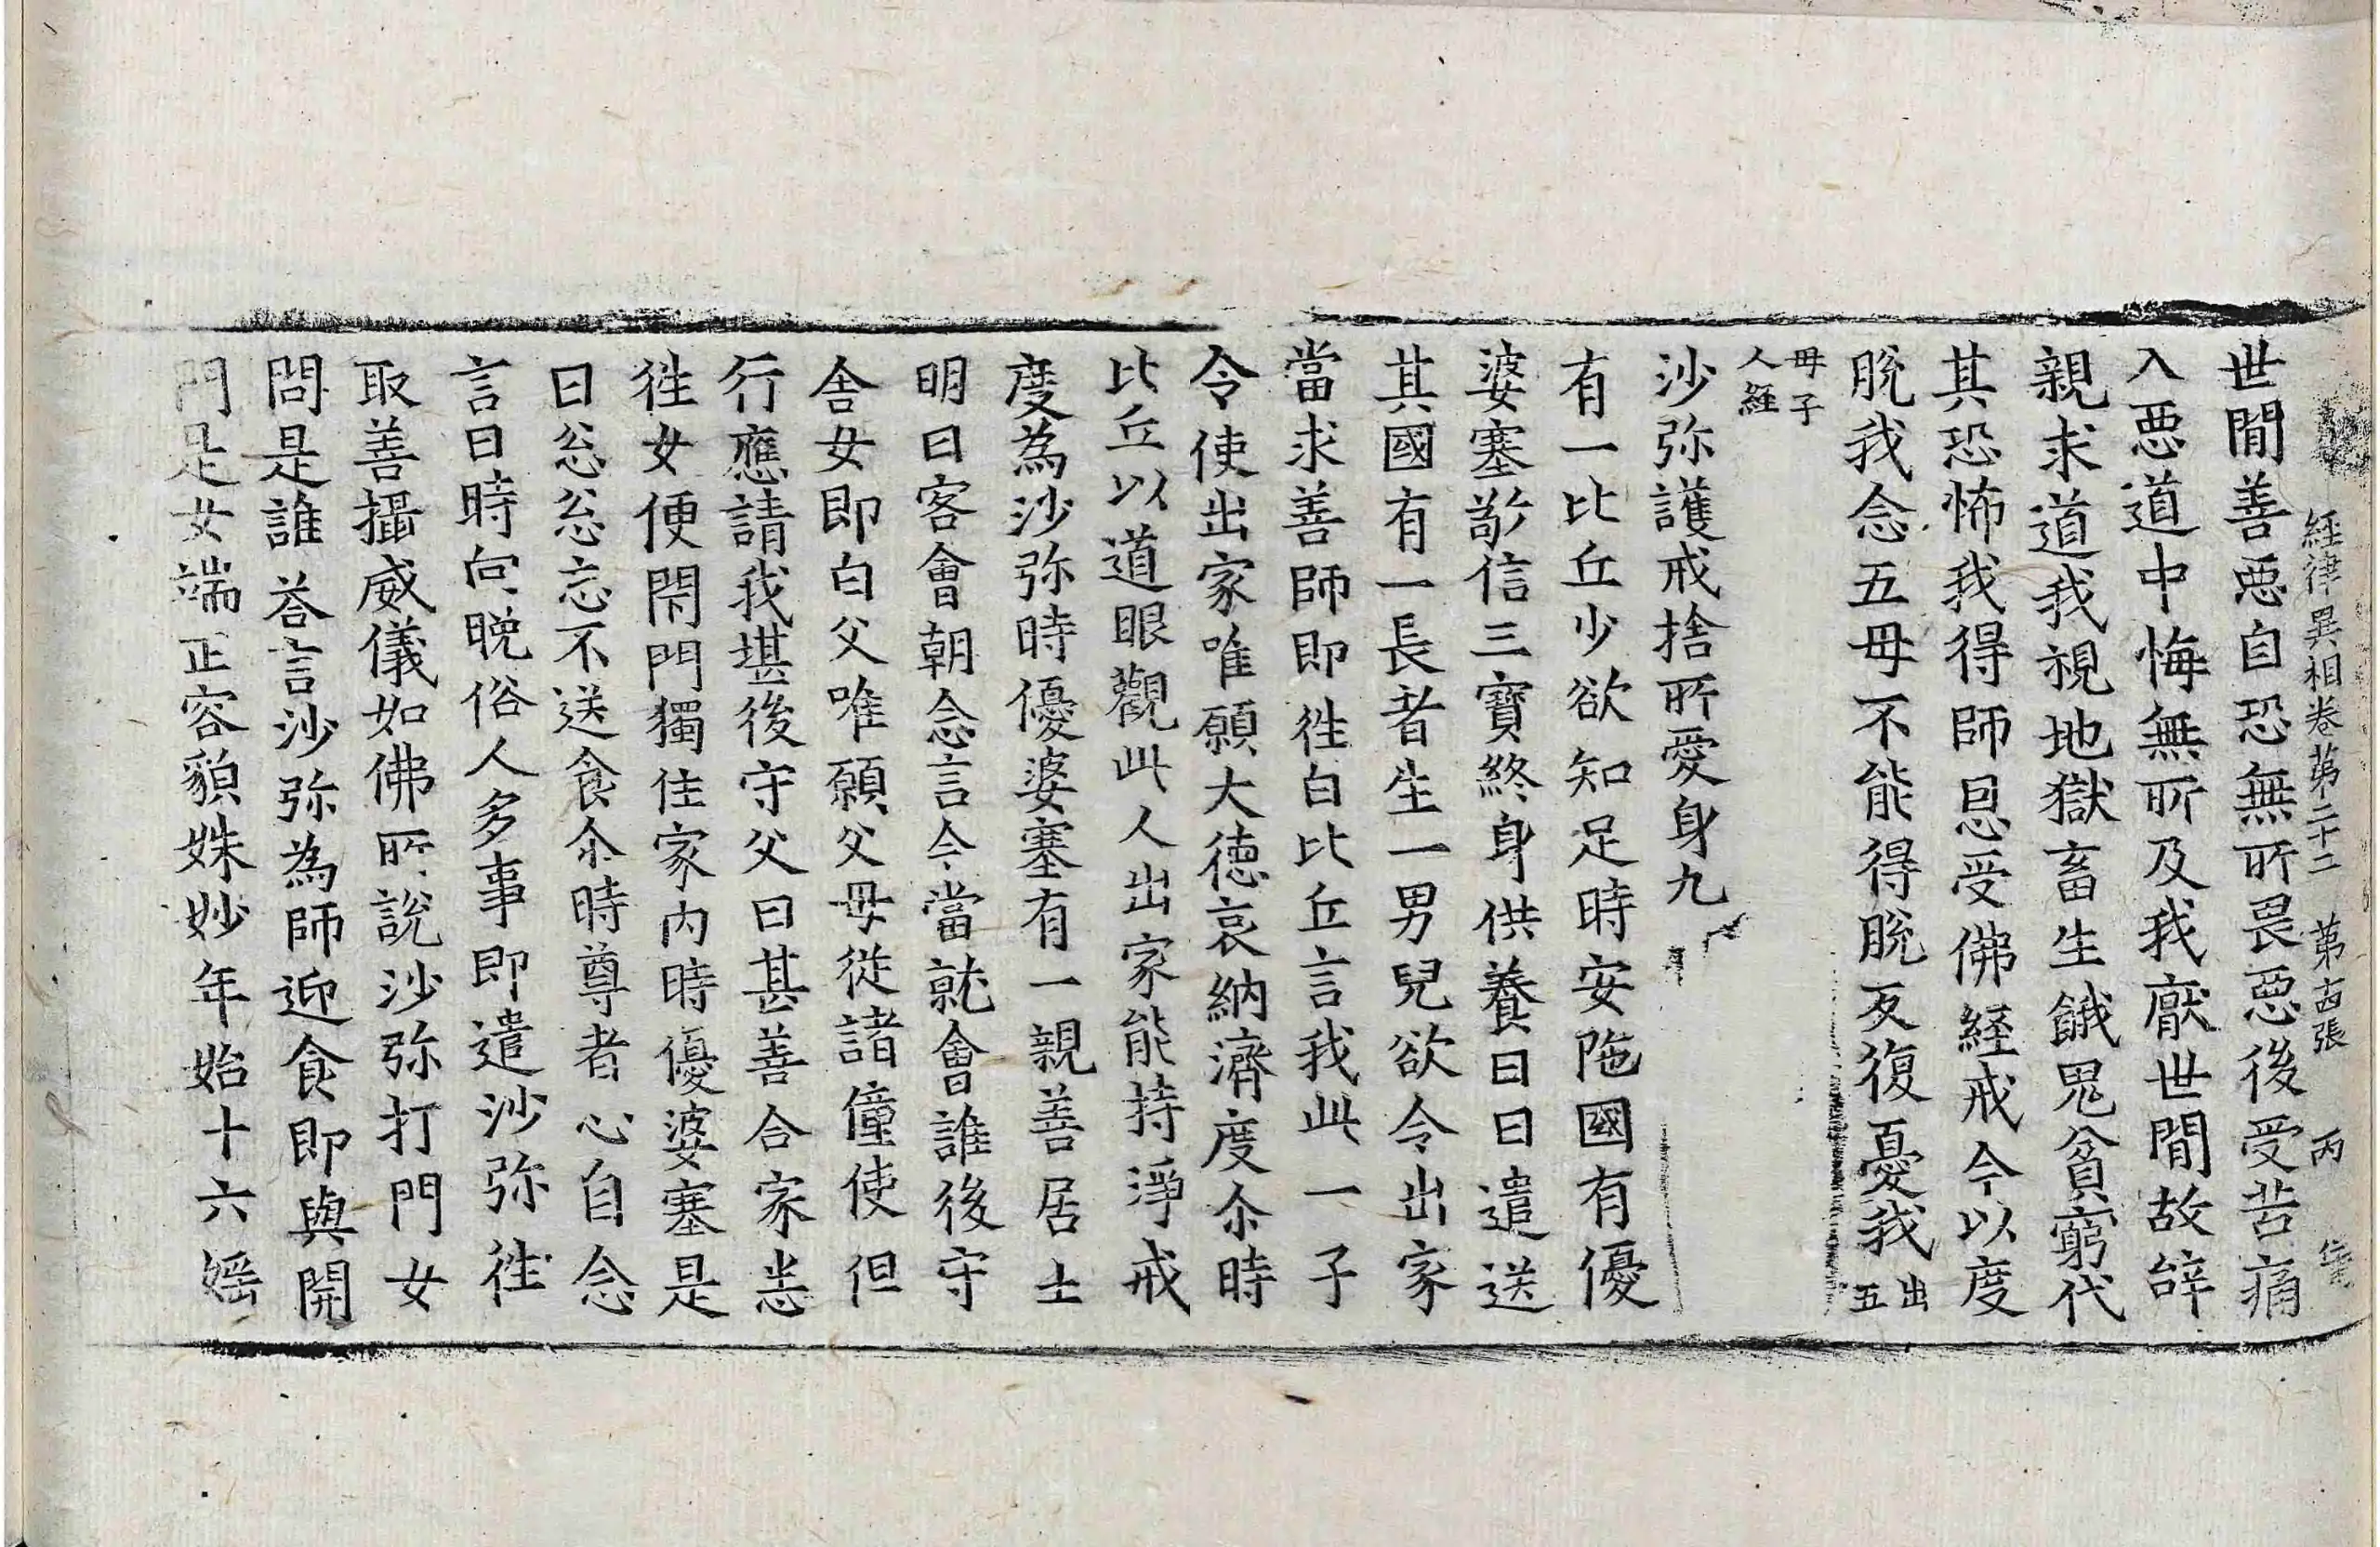 經律異相卷第二十二 第十四張 丙
世閒善惡自恐無所畏惡後受苦痛
入惡道中悔無所及我厭世間故辝
親求道我視地獄畜生餓鬼貧窮代
其恐怖我得師恩受佛經戒今以度
脫我念五母不能得脫反復憂我出五
母子人經
沙弥護戒捨所愛身九
有一比丘少欲知足時安陁國有優
婆塞敬信三寶終身供養日日遣送
其國有一長者生一男兒欲令出家
當求善師即徃白比丘言我此一子
令使出家唯願大德哀納濟度尒時
比丘以道眼觀此人出家能持淨戒
度為沙弥時優婆塞有一親善居士
明日客會朝念言今當就會誰後守
舍女即白父唯願父母從諸僮使但
行應請我堪後守父曰甚善合家悉
徃女便閇門獨住家內時優婆塞是
日忩忩忘不送食尒時尊者心自念
言日時向晚俗人多事即遣沙弥徃
取善攝威儀如佛所說沙弥打門女
問是誰荅言沙弥為師迎食即與開
門是女端正容貌姝妙年始十六婬